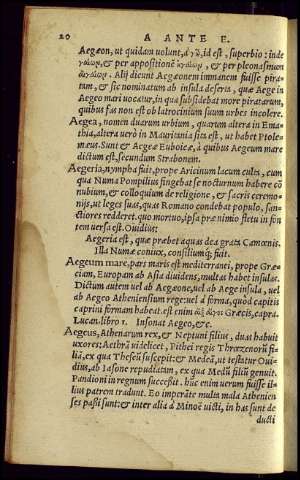 20 A ANTE E.
Aegæon, ut quidam uolunt, à γῶ, id est, superbio: inde
γαίων, & per appositionē ἀγαίων, & per pleonasmum
αἰγαίων. Alij dicunt Aegæonem immanem fuisse pira=
tam, & sic nominatum ab insula deserta, quæ Aege in
Aegeo mari uocatur, in qua subsidebat more piratarum,
quibus fas non est ob latrocinium suum urbes incolere.
Aegea, nomen duarum urbium, quarum altera in Ema=
thia, altera uerò in Mauritania sita est, ut habet Ptole=
meus. Sunt & Aegeæ Euboicæ, à quibus Aegeum mare
dictum est, secundum Strabonem.
Aegeria, nympha fuit, prope Aricinum lacum culta, cum
qua Numa Pompilius fingebat se nocturnum habere cō
nubium, & colloquium de religione, & sacris ceremo=
nijs, ut leges suas, quas Romano condebat populo, san=
ctiores redderet. quo mortuo, ipsa præ nimio fletu in fon
tem uersa est. Ouidius:
Aegeria est, quæ præbet aquas dea grata Camœnis.
Illa Numæ coniux, consiliumq; fuit.
Aegeum mare, pars maris est mediterranei, prope Græ=
ciam, Europam ab Asia diuidens, multas habet insulas.
Dictum autem uel ab Aegæone, uel ab Aege insula, uel
ab Aegeo Atheniensium rege: uel à forma, quòd capitis
caprini formam habeat. est enim Græcis, capra.
Lucan. libro 1. Insonat Aegeo, &c.
Aegeus, Athenarum rex, & Neptuni filius, duas habuit
uxores: Aethrā uidelicet, Pithei regis Thrœzenorū fi=
liā, ex qua Theseū suscepit: & Medeā, ut testatur Oui=
dius, ab Iasone repudiatam, ex qua Medū filiū genuit.
Pandioni in regnum successit. hūc enim uerum fuisse il=
lius patron tradunt. Eo imperāte multa mala Athenien
ses passi sunt: & inter alia à Minoë uicti, in has sunt de
ducti